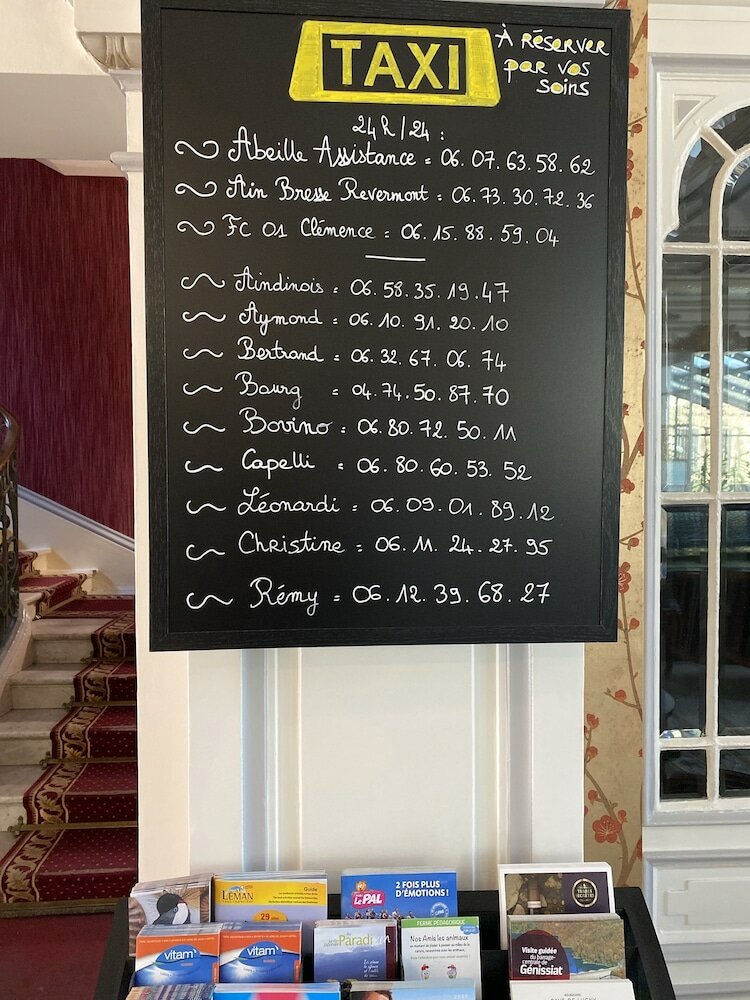 TAXI
À réserver
par vos
soins
24h/24 :
Abeille Assistance = 06.07.63.58.62
Ain Bresse Revermont : 06.73.30.72.36
FC 01 Clémence = 06.15.88.59.04
Aindinois = 06.58.35.19.47
Aymond = 06.10.91.20.10
Bertrand = 06.32.67.06.74
Bourg = 04.74.50.87.70
Bovino : 06.80.72.50.11
Capelli = 06.80.60.53.52
Léonardi = 06.09.01.89.12
Christine = 06.11.24.27.95
Rémy = 06.12.39.68.27
LÉMAN
Guide
29 ans
Le PAL
2 FOIS PLUS
D'ÉMOTIONS !
vitam
vitam
Paradi
FERME PÉDAGOGIQUE
Nos Amis les animaux
Visite guidée
du barrage-
centrale de
Génissiat